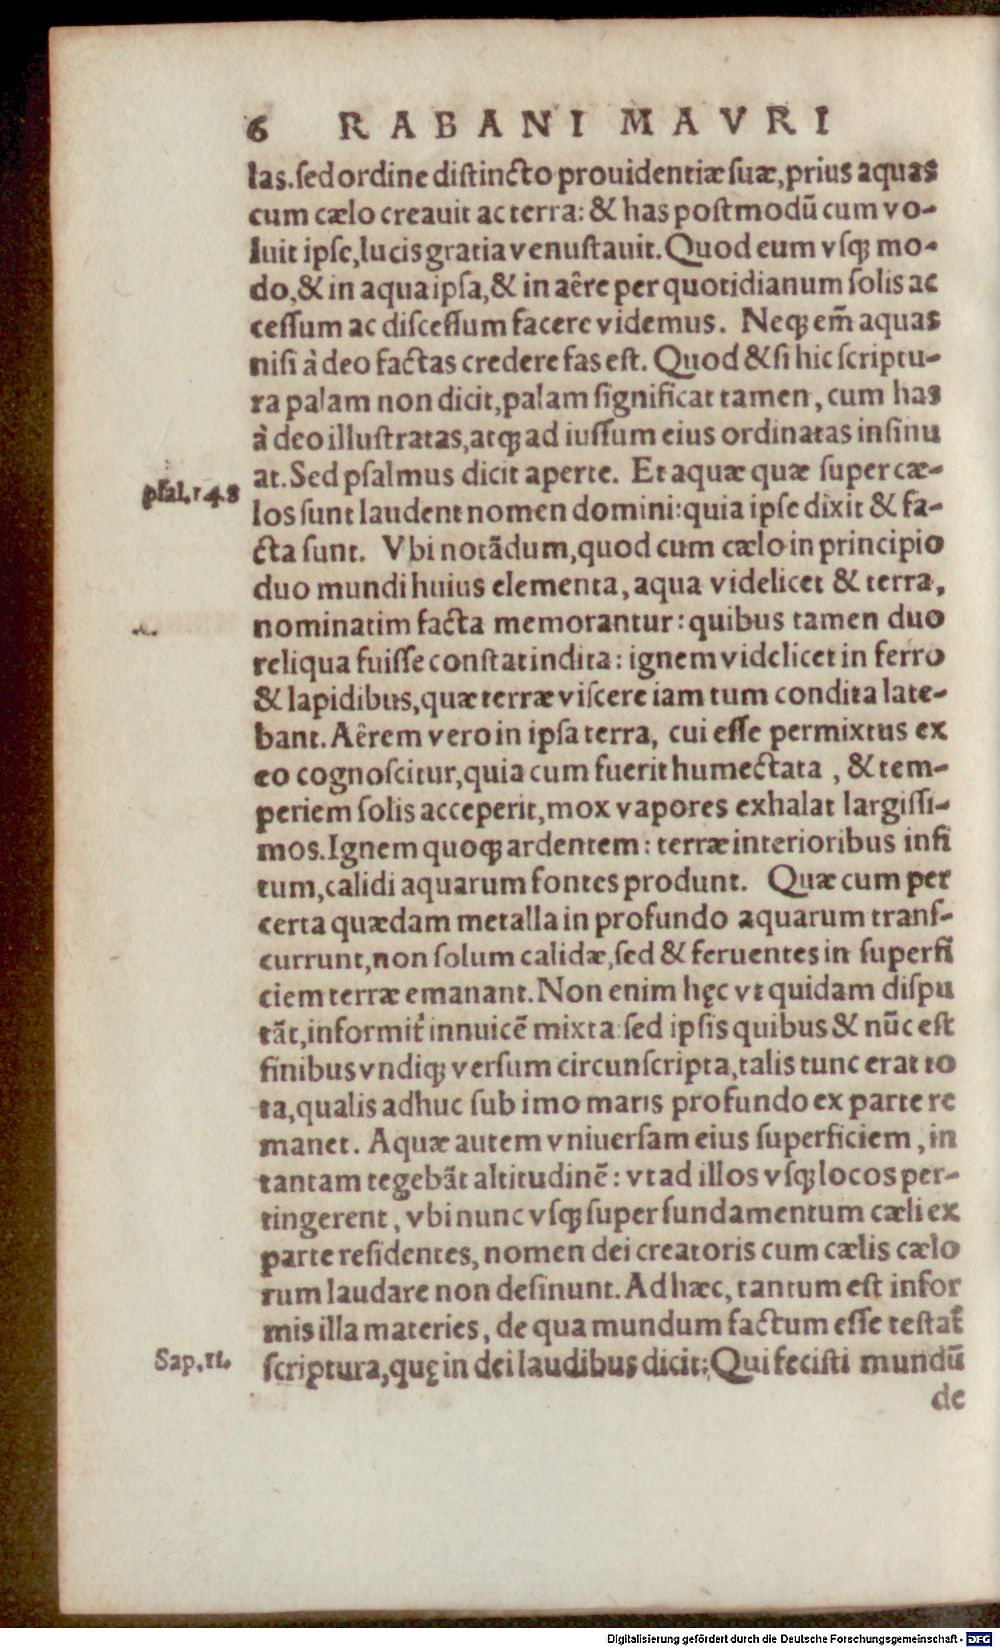 6 RABANI MAVRI
las. sed ordine distincto prouidentiæ suæ, prius aquas
cum cælo creauit ac terra: & has postmodū cum vo-
luit ipse, lucis gratia venustauit. Quod eum vsq; mo-
do, & in aqua ipsa, & in aëre per quotidianum solis ac
cessum ac discessum facere videmus. Neq; em̄ aquas
nisi à deo factas credere fas est. Quod & si hic scriptu-
ra palam non dicit, palam significat tamen, cum has
à deo illustratas, atq; ad iussum eius ordinatas insinu
at. Sed psalmus dicit aperte. Et aquæ quæ super cæ-
psal. 148
los sunt laudent nomen domini: quia ipse dixit & fa-
cta sunt. Vbi notādum, quod cum cælo in principio
duo mundi huius elementa, aqua videlicet & terra,
nominatim facta memorantur: quibus tamen duo
reliqua fuisse constat indita: ignem videlicet in ferro
& lapidibus, quæ terræ viscere iam tum condita late-
bant. Aërem vero in ipsa terra, cui esse permixtus ex
eo cognoscitur, quia cum fuerit humectata, & tem-
periem solis acceperit, mox vapores exhalat largissi-
mos. Ignem quoq; ardentem: terræ interioribus infi
tum, calidi aquarum fontes produnt. Quæ cum per
certa quædam metalla in profundo aquarum trans-
currunt, non solum calidæ, sed & feruentes in superfi
ciem terræ emanant. Non enim hęc vt quidam dispu
tāt, informit᷑ innuicē mixta sed ipsis quibus & nūc est
finibus vndiq; versum circunscripta, talis tunc erat to
ta, qualis adhuc sub imo maris profundo ex parte re
manet. Aquæ autem vniuersam eius superficiem, in
tantam tegebāt altitudinē: vt ad illos vsq; locos per-
tingerent, vbi nunc vsq; super fundamentum cæli ex
parte residentes, nomen dei creatoris cum cælis cælo
rum laudare non desinunt. Ad hæc, tantum est infor
mis illa materies, de qua mundum factum esse testat᷑
Sap. 11.
scriptura, quę in dei laudibus dicit: Qui fecisti mundū
de
Digitalisierung gefördert durch die Deutsche Forschungsgemeinschaft - DFG